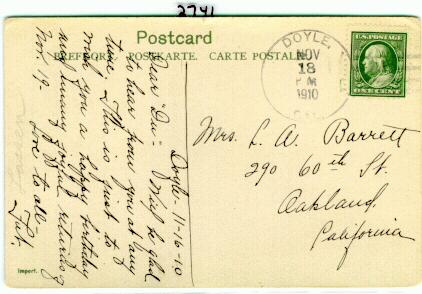 2741
Postcard
BREFKORT. POSTKARTE. CARTE POSTALE.
DOYLE,
NOV
18
1910
CAL.
U.S. POSTAGE
ONE CENT
Doyle - 11-16-10
Dear "Du" - Will be glad
to hear from you at any
time. This is just to
wish you a happy birthday
and many joyful returns of
Love to all -
Nov. 19 -
Mrs. L. A. Barrett
290 60th St.
Oakland,
California
Lassen
Import.